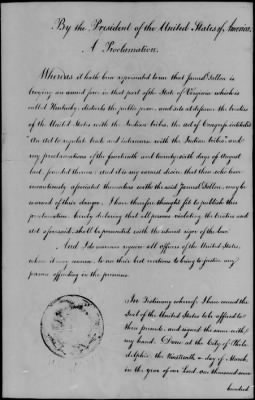 By the President of the United States of America.
A Proclamation.
Whereas it hath been represented to me that James O'Fallon is
levying an armed force in that part of the State of Virginia which is
called Kentucky, disturbs the public peace, and sets at defiance the treaties
of the United States with the Indian tribes, the act of Congress intituled
"An act to regulate trade and intercourse with the Indian tribes" and
my proclamations of the fourteenth and twenty-sixth days of August
last founded thereon: and it is my earnest desire that those who have
incautiously associated themselves with the said James O'Fallon, may be
warned of their danger, I have therefore thought fit to publish this
proclamation hereby declaring that all persons violating the treaties and
act aforesaid shall be prosecuted with the utmost rigor of the law.
And I do moreover require all officers of the United States,
whom it may concern, to use their best exertions to bring to justice any
persons offending in the premises.
In Testimony whereof I have caused the
Seal of the United States to be affixed to
these presents, and signed the same with
my hand. Done at the City of Phila-
delphia, the Nineteenth day of March,
in the year of our Lord, one thousand seven
hundred